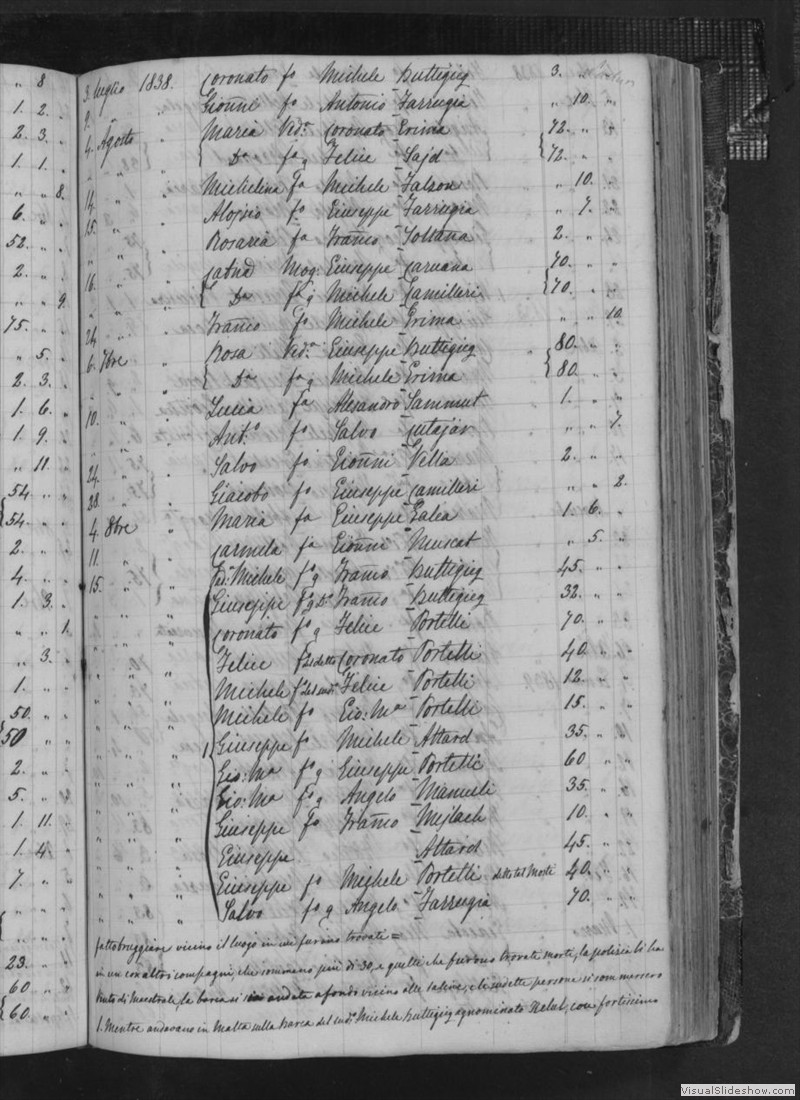 " 8
" 1. 2. "
2. 3. "
1. 1. "
" " 8.
6. " "
52. " "
2. " "
" " 9.
75. " "
" 5. "
2. 3. "
1. 6. "
1. 9. "
" 11. "
54. " "
54. " "
2. " "
4. " "
1. 3. "
" " 1.
" 3. "
1. " "
50. " "
50 " "
2. " "
5. " "
1. 11. "
1. 4. "
7. " "
" " "
23. " "
60 " "
60. " "
3. luglio 1838. Coronato fo Michele Buttigieg 3. " "
9. " " Gionni fo Antonio Farrugia " 10. "
4. Agosto " Maria Vda Coronato Grima 72. " "
" " " Da fa q Felice Sajd 72. " "
14. " " Michelina fa Michele Falzon " 10. "
15. " " Aloisio fo Giuseppe Farrugia " 7. "
" " " Rosaria fa Franco Soltana 2. " "
16. " " Catna Mog: Giuseppe Caruana 70. " "
" " " Da fa q Michele Camilleri 70. " "
24 " " Franco fo Michele Grima " " 10.
6. 7bre " Rosa Vda Giuseppe Buttigieg 80. " "
" " " Da fa q Michele Grima 80. " "
10. " " Lucia fa Alesandro Sammut 1. " "
" " " Anto fo Salvo Cutajar " " 7.
24. " " Salvo fo Gionni Vella 2. " "
28 " " Giacobo fo Giuseppe Camilleri " " 2.
4. 8bre " Maria fa Giuseppe Galea 1. 6. "
11. " " Carmela fa Gionni Muscat " 5. "
15. " " Pne Michele fo q Franco Buttigieg 45. " "
" " " Giuseppe fo q Do Franco Buttigieg 32. " "
" " " Coronato fo q Felice Portelli 70. " "
" " " Felice fo del detto Coronato Portelli 40. " "
" " " Michele fo del sudo Felice Portelli 12. " "
" " " Michele fo Gio: Ma Portelli 15. " "
" " " Giuseppe fo Michele Attard 35. " "
" " " Gio: Ma fo q Giuseppe Portelli 60 " "
" " " Gio: Ma fo q Angelo Manueli 35. " "
" " " Giuseppe fo Franco Mejlach 10. " "
" " " Giuseppe Attard 45. " "
" " " Giuseppe fo Michele Portelli detto tal Mosti 40. " "
" " " Salvo fo q Angelo Farrugia 70. " "
1
fatto bruggiare vicino il luogo in cui furono trovati =
in un con altri compagni, che sommano più di 30, e quelli che furono trovate morti, la polizia li ha
di Maestrale, la barca si andata a fondo vicino alle saline, e le sudette persone si sommersero
1. Mentre andavano in Malta sulla barca del sudo Michele Buttigieg agnominato con fortissimo
VisualSlideshow.com